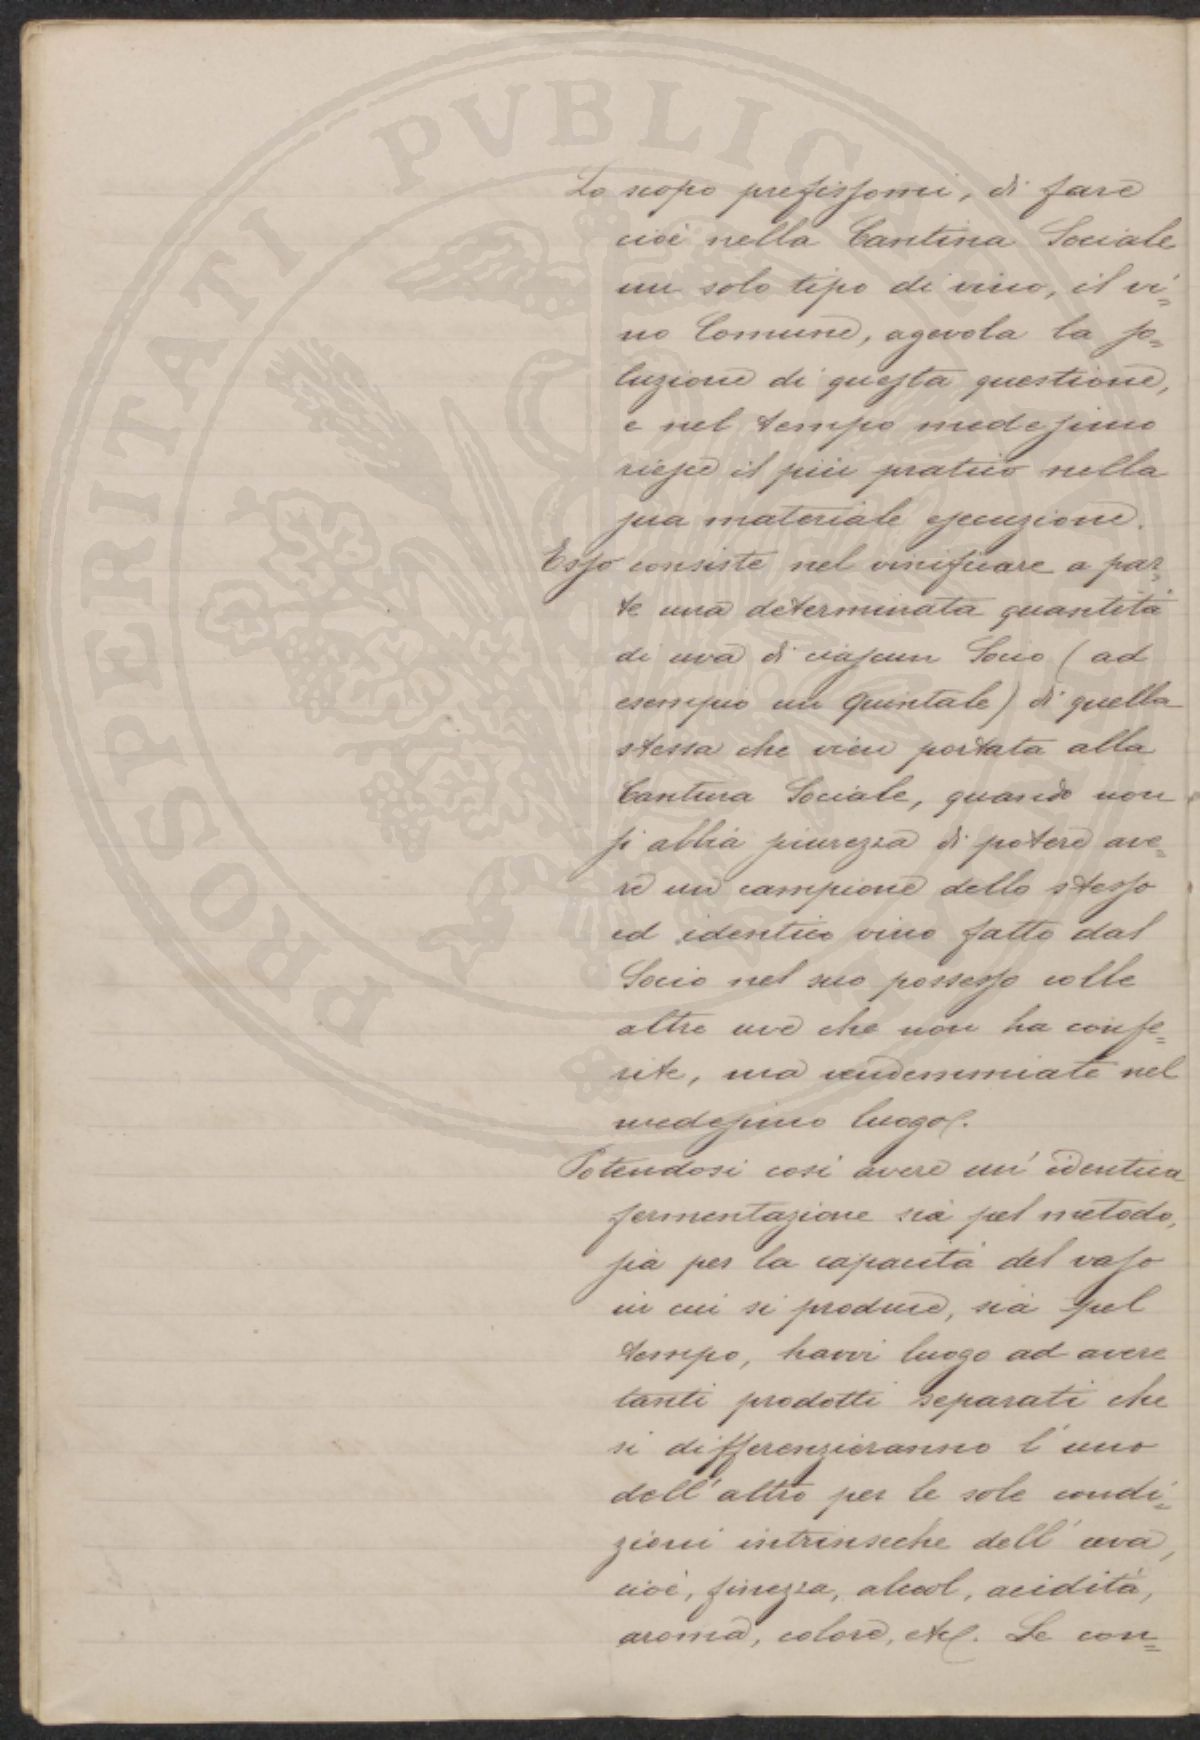 PROSPERITATI PVBLICAE
Lo scopo prefissomi, di fare
cioè nella Cantina Sociale
un solo tipo di vino, il vi=
no Comune, agevola la so=
luzione di questa questione,
e nel tempo medesimo
riesce il più pratico nella
sua materiale esecuzione.
Esso consiste nel vinificare a par=
te una determinata quantità
di uva di ciascun Socio (ad
esempio un Quintale) di quella
stessa che vien portata alla
Cantina Sociale, quando non
si abbia sicurezza di potere ave=
re un campione dello stesso
ed identico vino fatto dal
Socio nel suo possesso colle
altre uve che non ha confe=
rite, ma vendemmiate nel
medesimo luogo.
Potendosi così avere un' identica
fermentazione sia pel metodo,
sia per la capacità del vaso
in cui si produce, sia pel
tempo, havvi luogo ad avere
tanti prodotti separati che
si differenzieranno l'uno
dell'altro per le sole condi=
zioni intrinseche dell'uva,
cioè, finezza, alcool, acidità,
aroma, colore, etc. Le con=